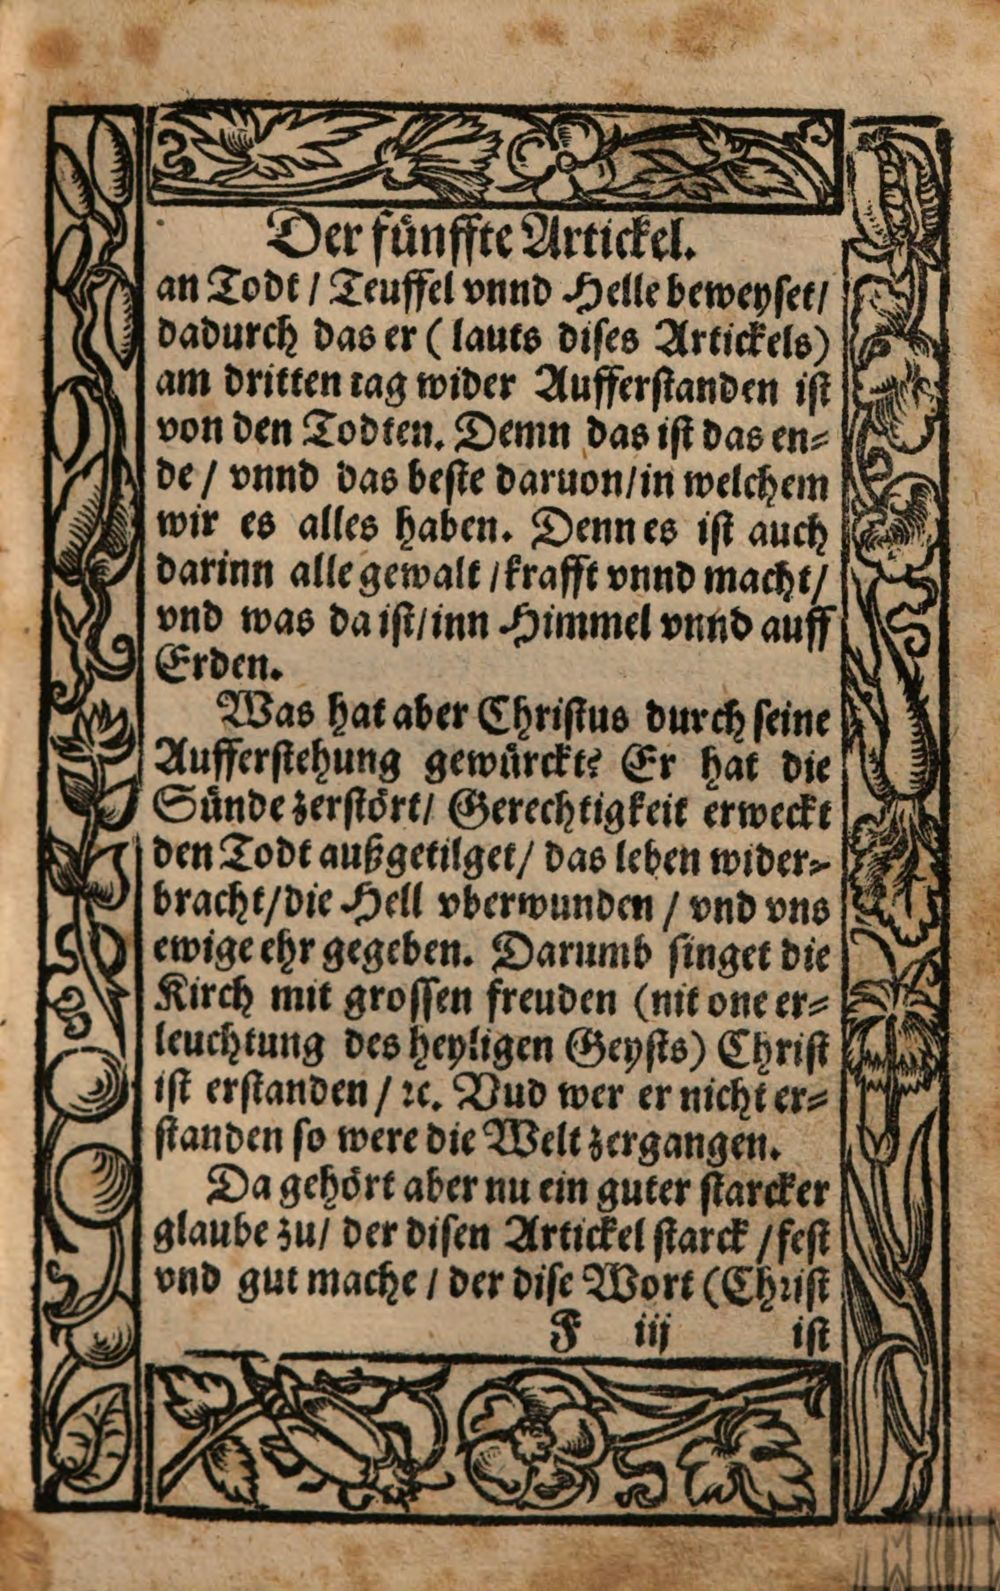 Der fünffte Artickel.
an Todt / Teuffel vnnd Helle beweyset/
dadurch das er ( lauts dises Artickels)
am dritten tag wider Aufferstanden ist
von den Todten. Demn das ist das en⸗
de / vnnd das beste daruon/in welchem
wir es alles haben. Denn es ist auch
darinn alle gewalt /krafft vnnd macht/
vnd was da ist/inn Himmel vnnd auff
Erden.
Was hat aber Christus durch seine
Aufferstehung gewürckt? Er hat die
Sünde zerstört/ Gerechtigkeit erweckt
den Todt außgetilget/ das leben wider⸗
bracht/die Hell vberwunden / vnd vns
ewige ehr gegeben. Darumb singet die
Kirch mit grossen freuden (nit one er⸗
leuchtung des heyligen Geysts) Christ
ist erstanden / ꝛc. Vud wer er nicht er⸗
standen so were die Welt zergangen.
Da gehört aber nu ein guter starcker
glaube zu/ der disen Artickel starck /fest
vnd gut mache / der dise Wort (Christ
F iij ist